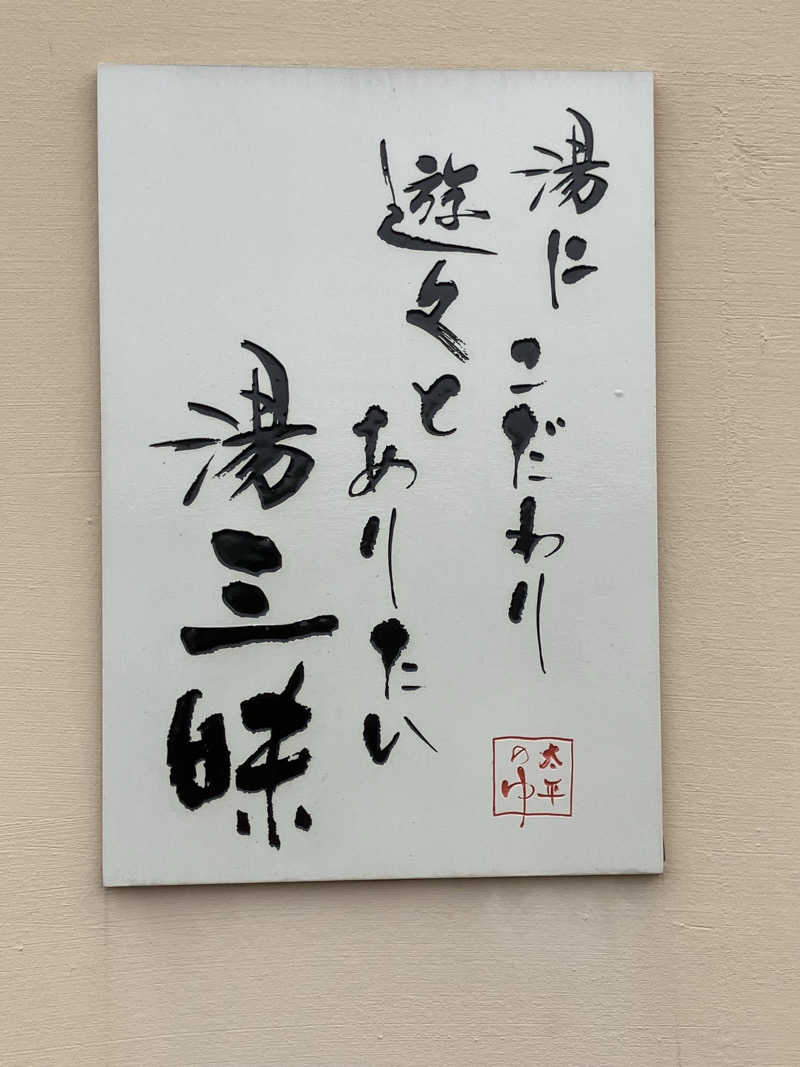 湯にこだわり
遊々とありたい
湯三昧
太平
のゆ